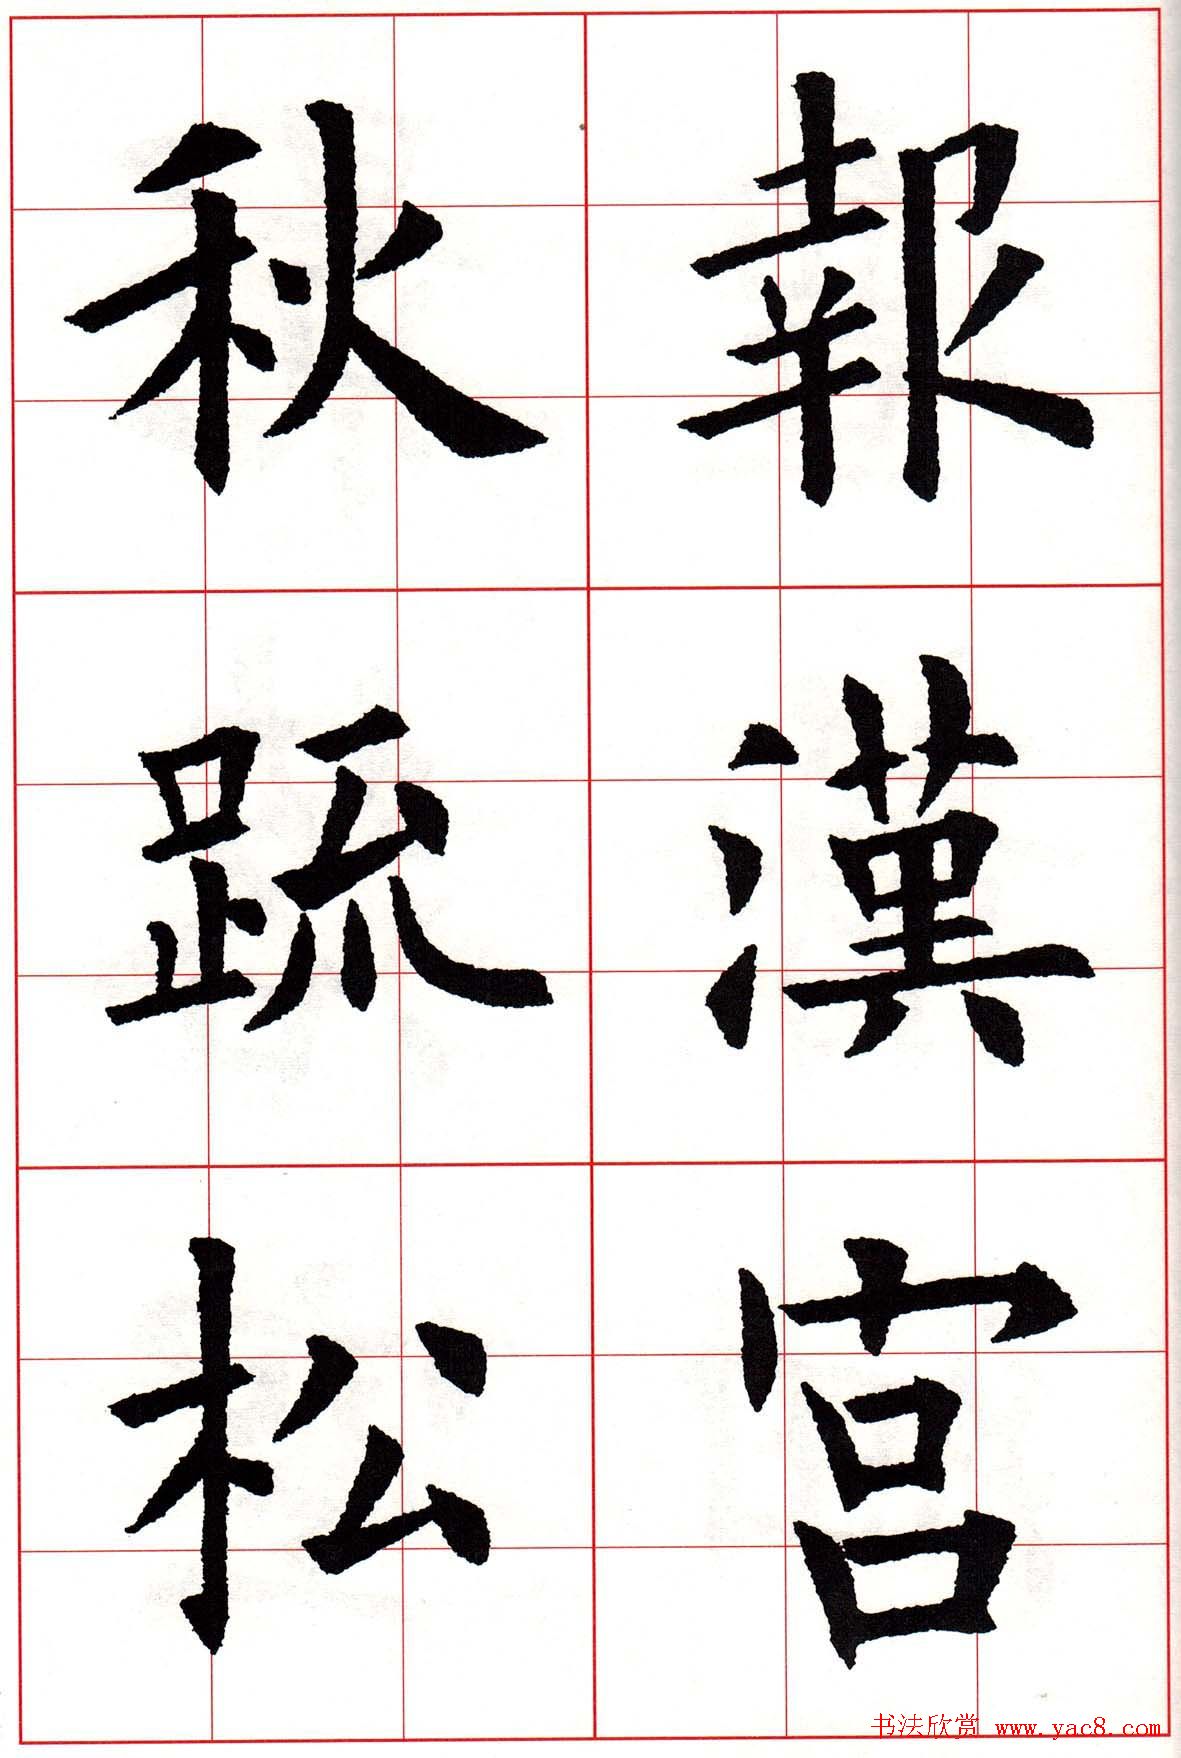 報漢宮
秋疏松
书法欣赏 www.yac8.com